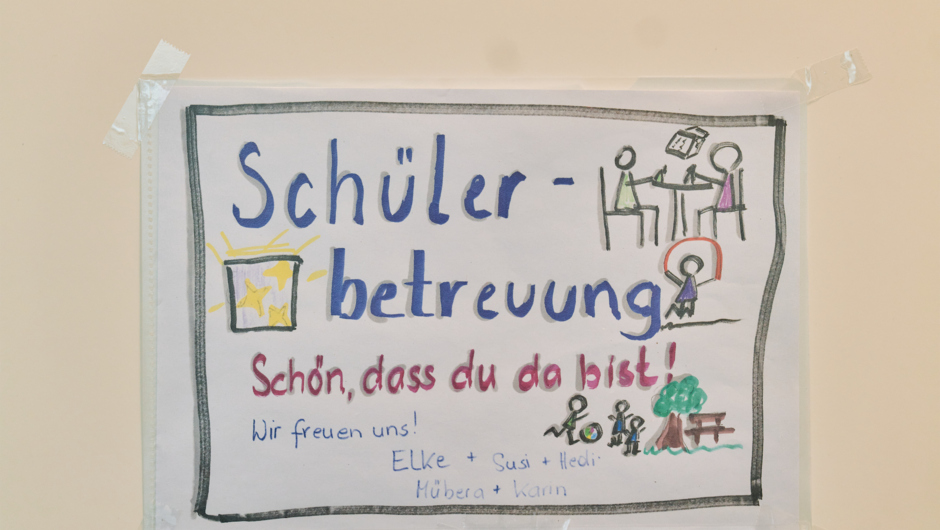 Schüler-
betreuung
Schön, dass du da bist!
Wir freuen uns!
Elke + Susi + Hedi
Mübera + Karin